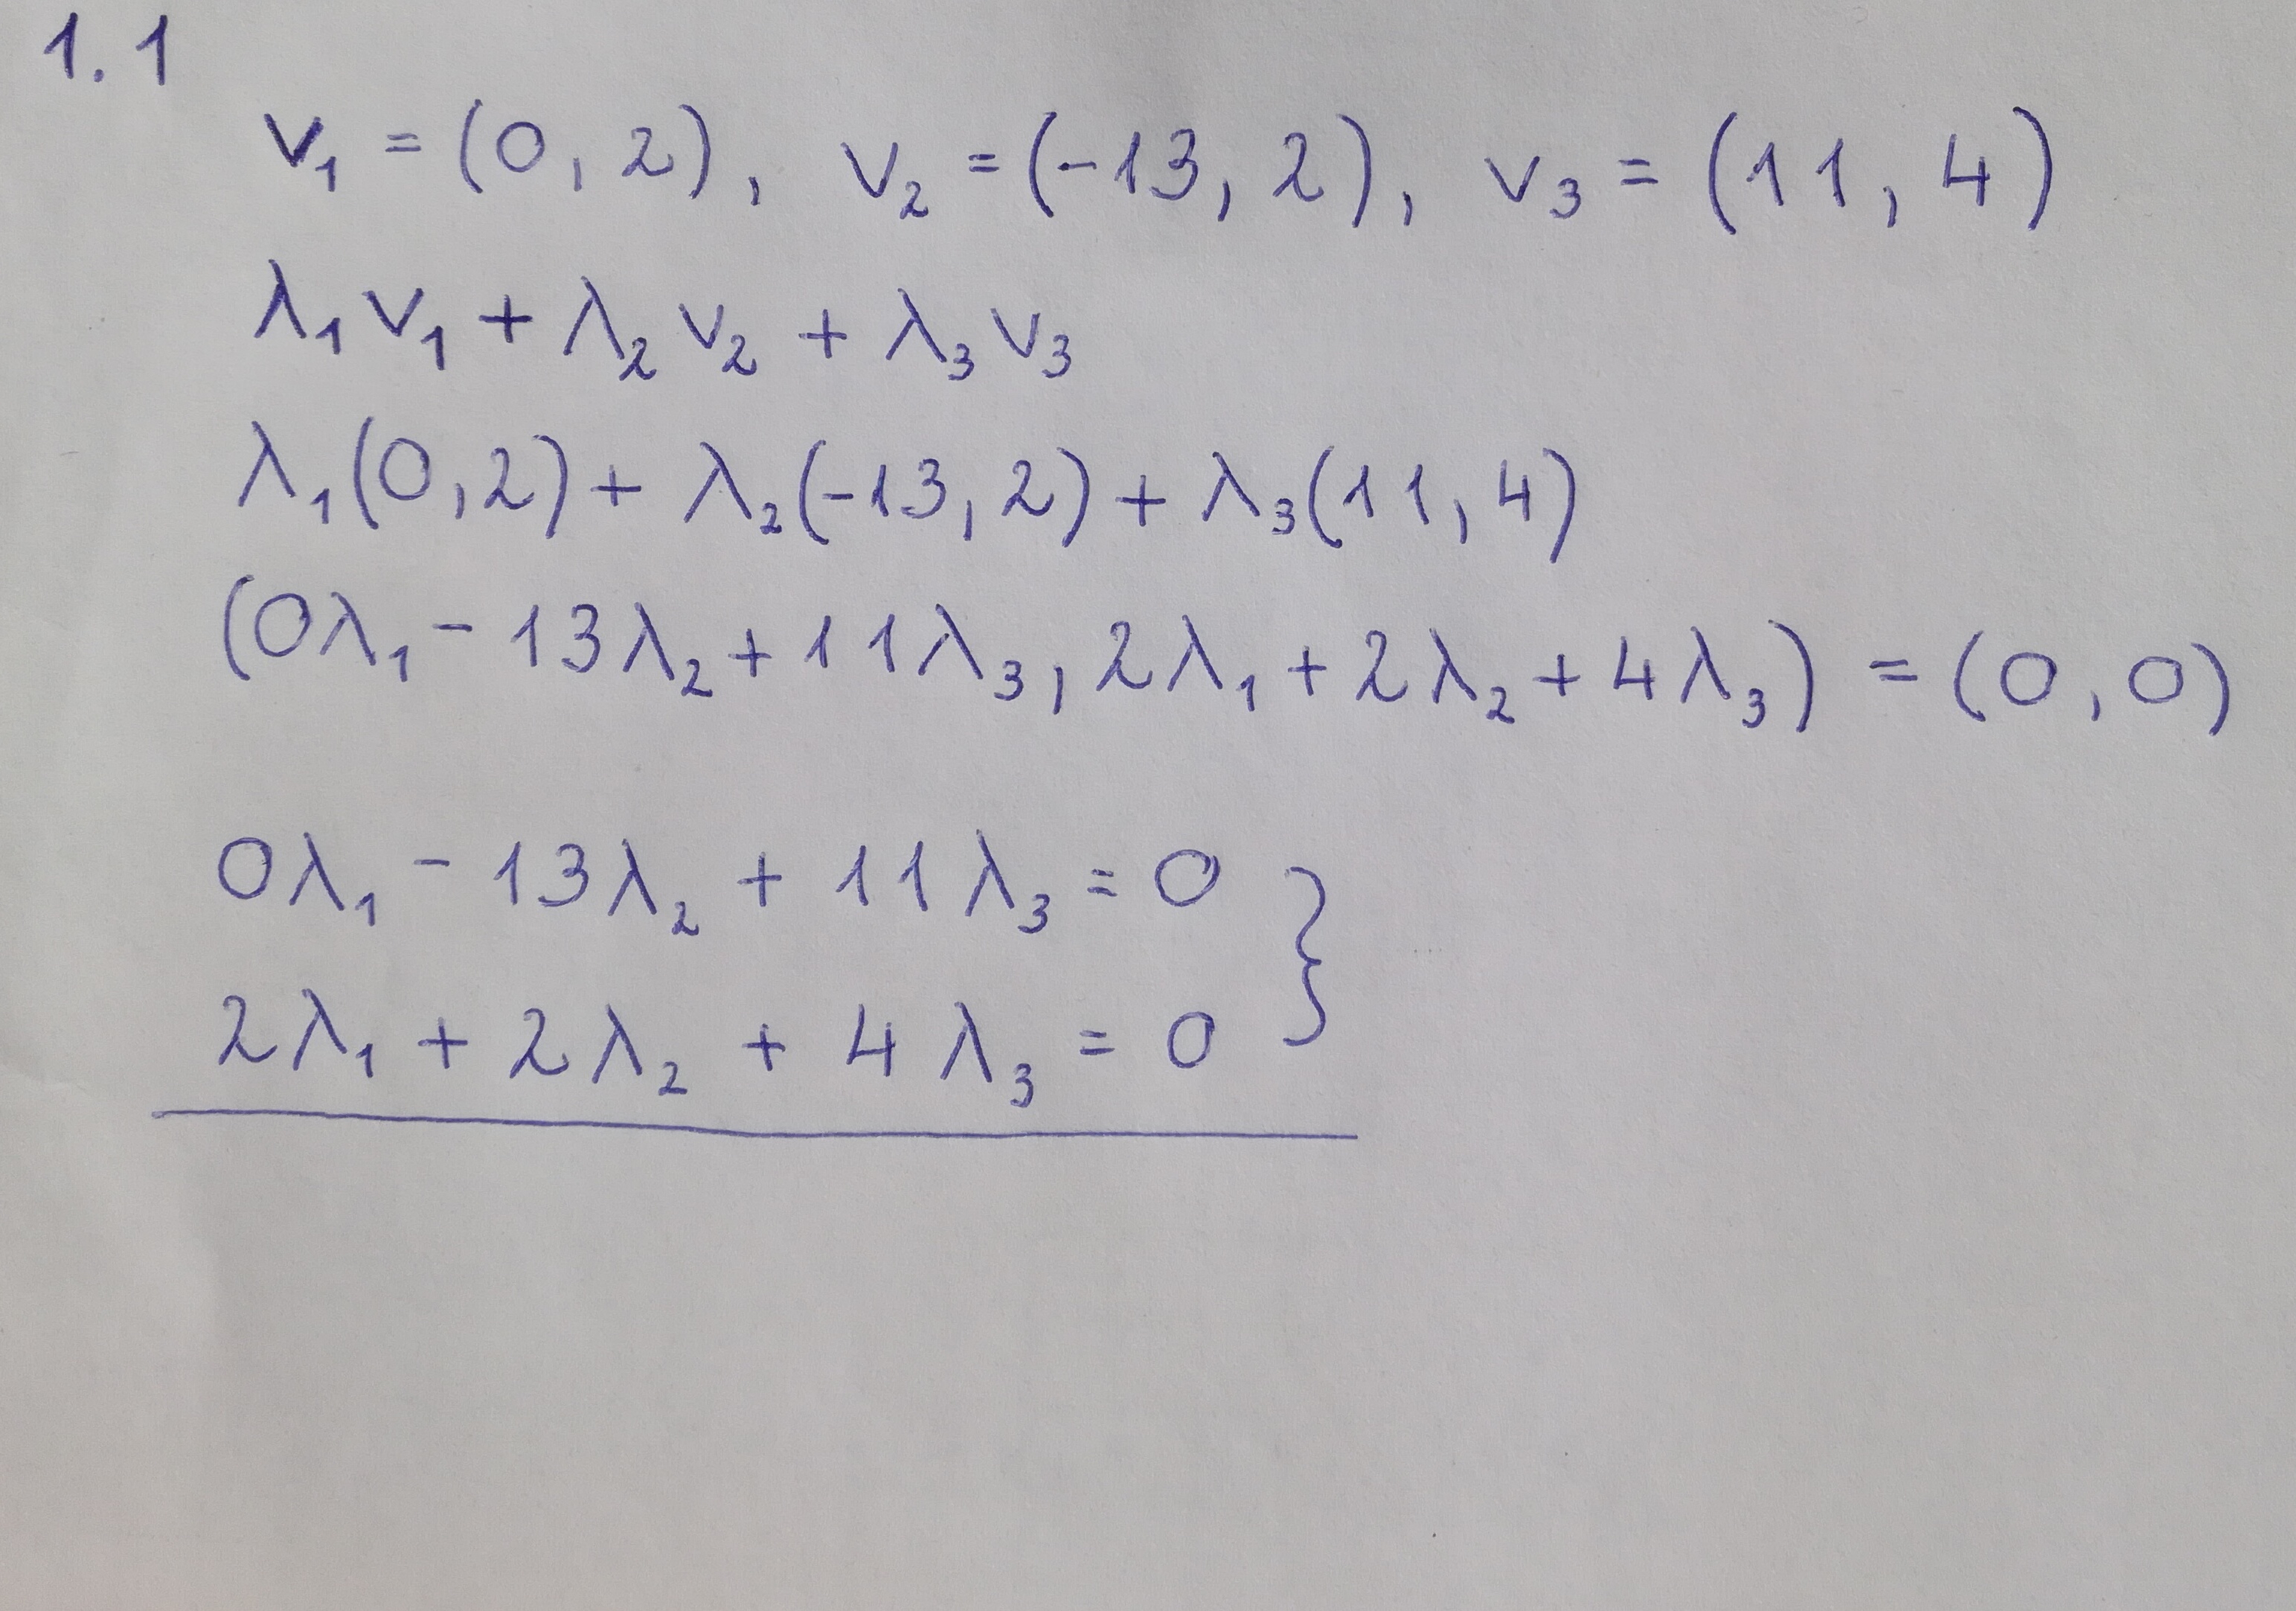 1.1
v₁ = (0, 2), v₂ = (-13, 2), v₃ = (11, 4)
λ₁v₁ + λ₂v₂ + λ₃v₃
λ₁(0,2) + λ₂(-13, 2) + λ₃(11, 4)
(0λ₁ - 13λ₂ + 11λ₃, 2λ₁ + 2λ₂ + 4λ₃) = (0, 0)
0λ₁ - 13λ₂ + 11λ₃ = 0 }
2λ₁ + 2λ₂ + 4λ₃ = 0